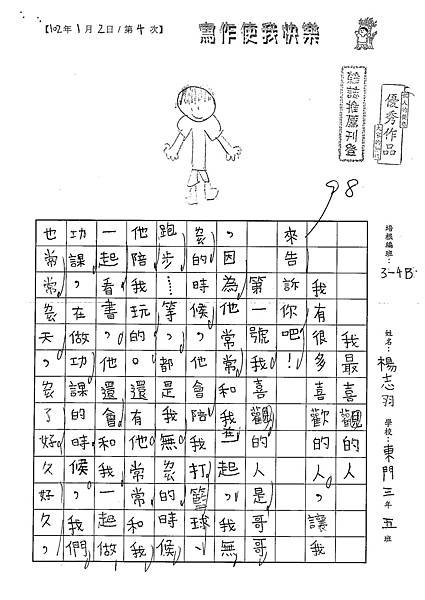 【102年1月2日/第4次】
寫作使我快樂
雜誌推薦刊登
優秀作品
98
培根編班：3-4B
姓名：楊志羽
學校：東門三年五班
我最喜觀的人
我有很多喜歡的人，讓我
來告訴你吧！
第一號我喜觀的人是哥
，因為他常常和我起，我無
的時候，他會陪我打籃球、
跑步……等，都是我無的時候，
他陪我玩的。還有他常和我
一起看書，他還會和我一起做
功課，在做功課的時候，我們
也常常天了好久好久，